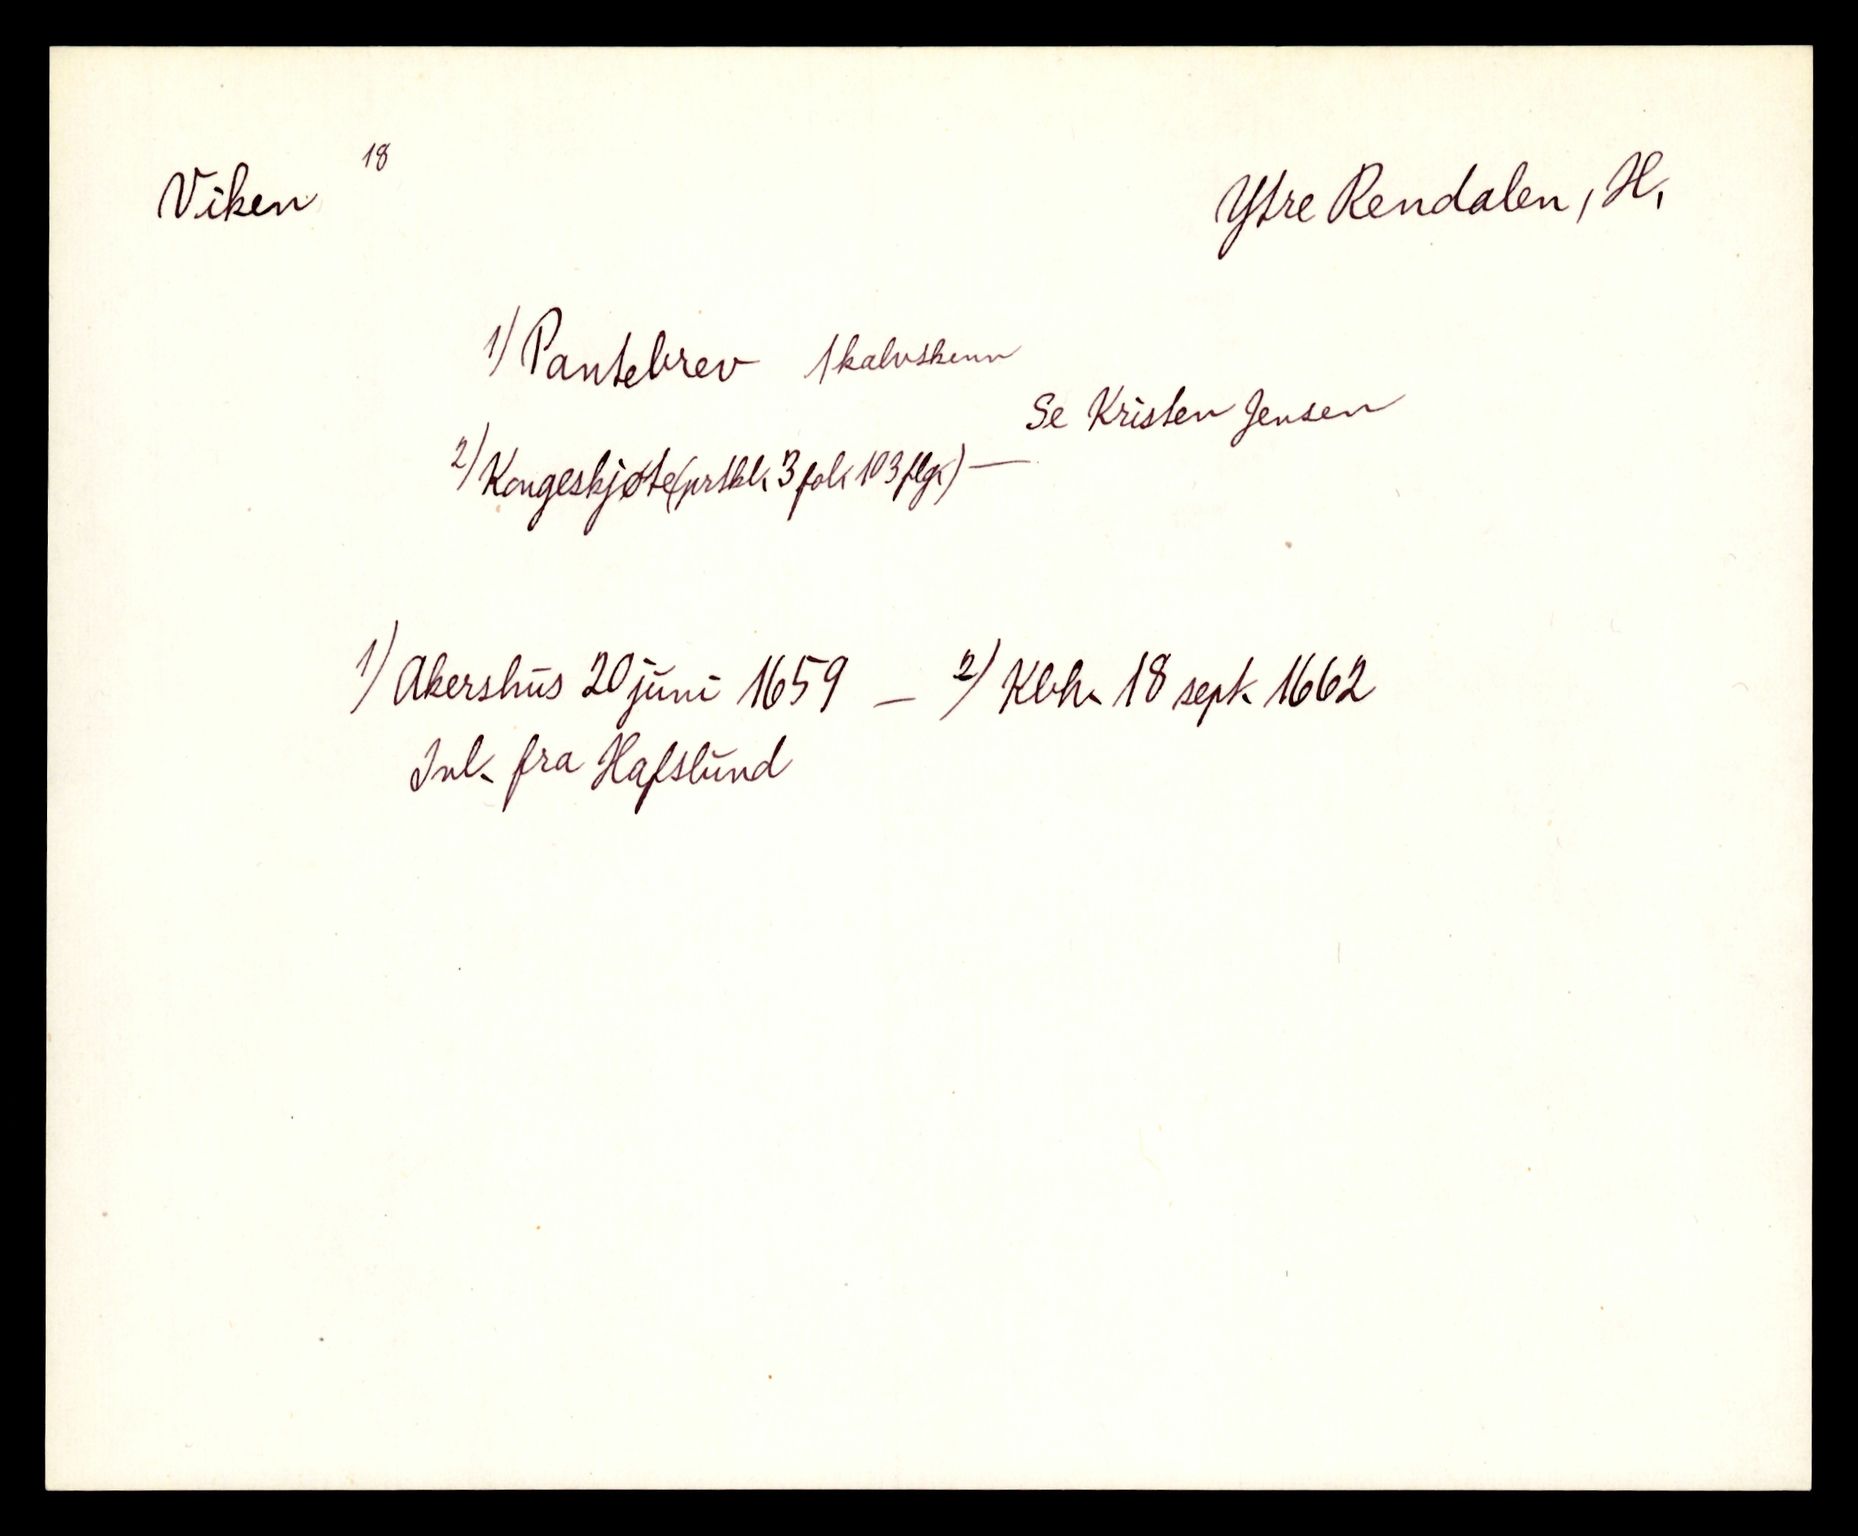 Viken 18
Ytre Rendalen, H.
1) Pantebrev 1 kalvskinn
Se Kristen Jensen
2) Kongeskjøte (prtkl. 3 fol. 103 flg.) —
1) Akershus 20 juni 1659 — 2) Kbh. 18 sept. 1662
Inl. fra Hafslund